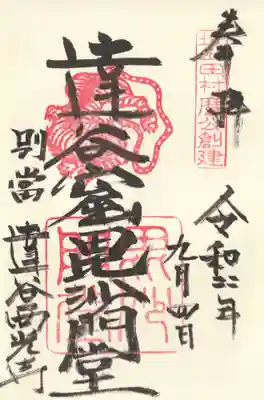 奉拝
坂上田村麿公創建
令和六年
九月四日
達谷窟毘沙門堂
別當 達谷西光寺